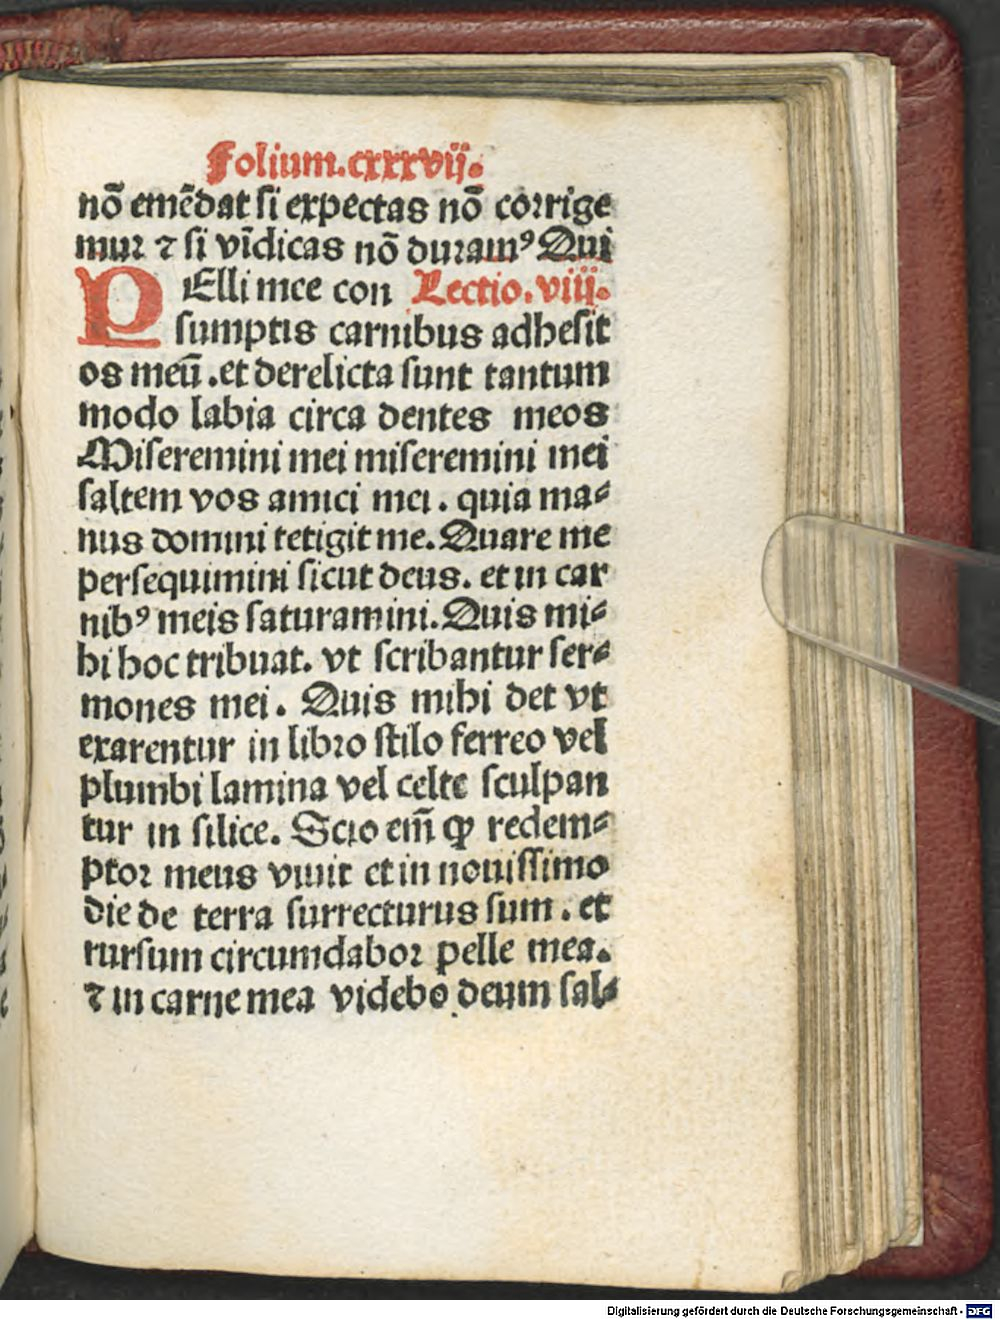 Folium.cxxxvij.
nõ emẽdat si expectas nõ corrige
mur ⁊ si vĩdicas nõ duramꝰ Qui
PElli mee con Lectio.viij.
sumptis carnibus adhesit
os meũ .et derelicta sunt tantum
modo labia circa dentes meos
Miseremini mei miseremini mei
saltem vos amici mei . quia ma⸗
nus domini tetigit me. Quare me
persequimini sicut deus. et in car
nibꝰ meis saturamini. Quis mi⸗
hi hoc tribuat. vt scribantur ser⸗
mones mei . Quis mihi det vt
exarentur in libro stilo ferreo vel
plumbi lamina vel celte sculpan
tur in silice. Scio em̃ ꝙ redem⸗
ptor meus viuit et in nouissimo
die de terra surrecturus sum . et
rursum circumdabor pelle mea.
⁊ in carne mea videbo deum sal⸗
Digitalisierung gefördert durch die Deutsche Forschungsgemeinschaft - DFG